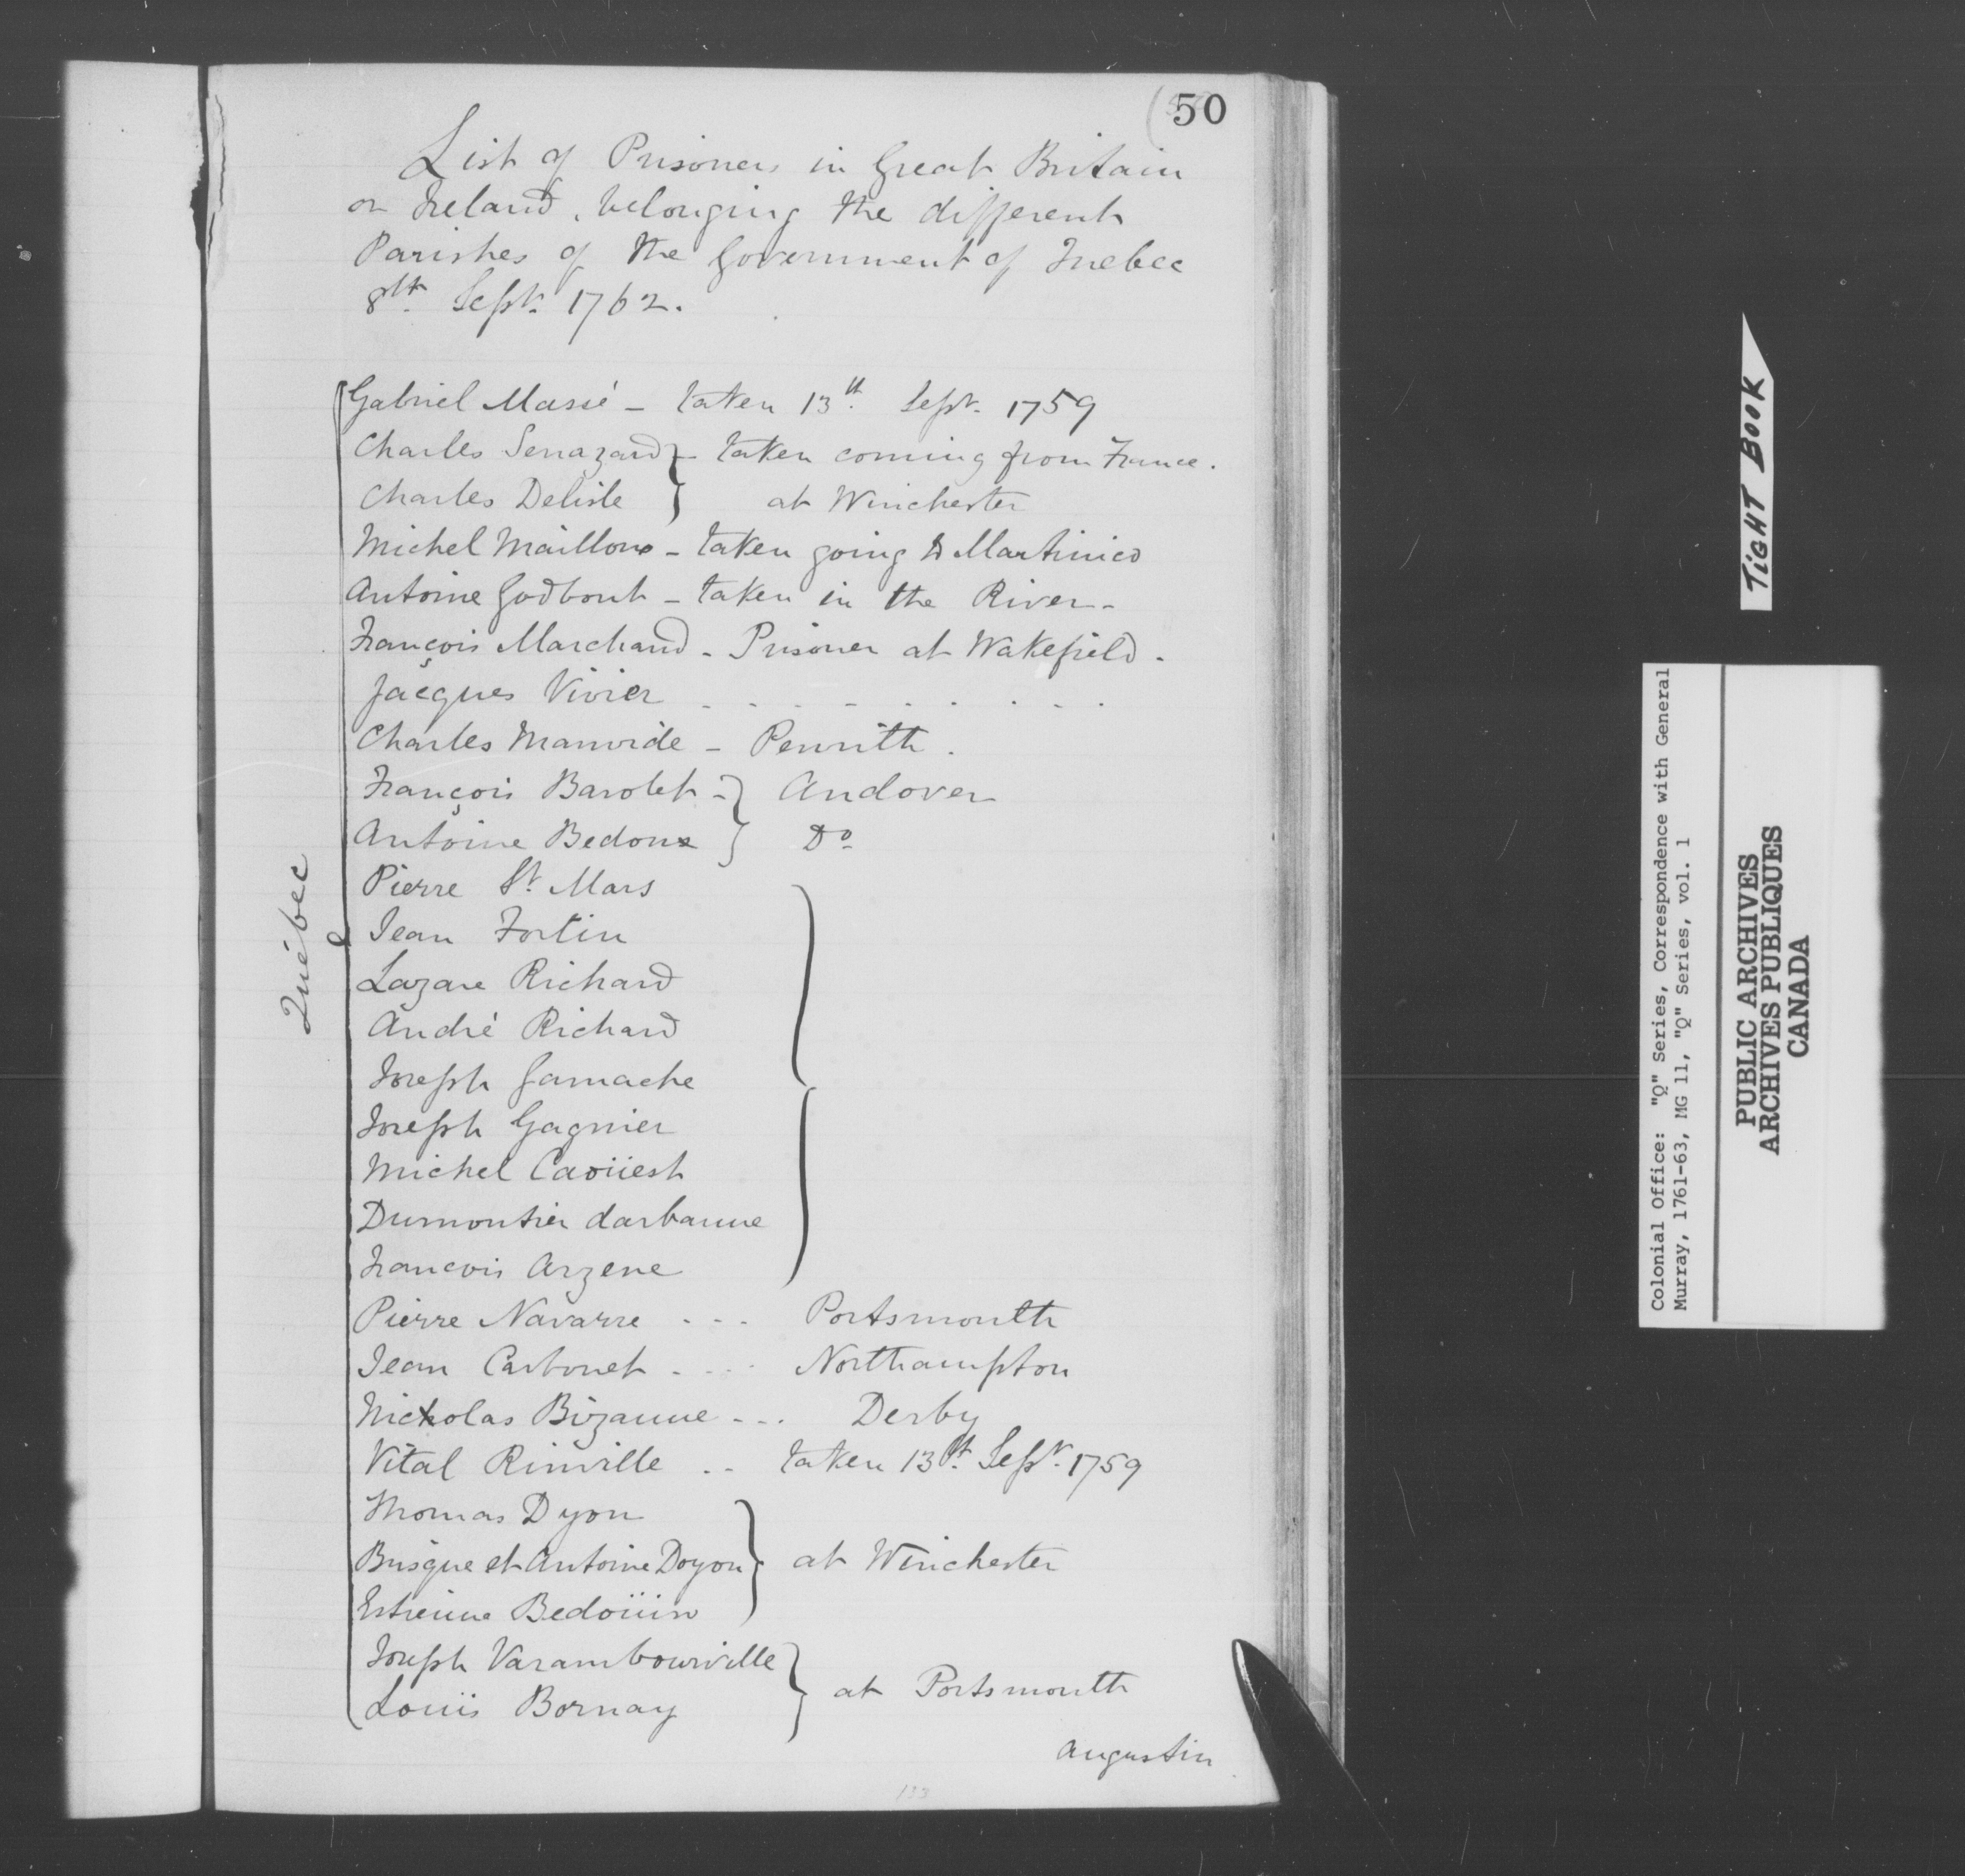 50
List of Prisoners in Great Britain
or Ireland, belonging the different
Parishes of the Government of Quebec
8th Sept. 1762.
Gabriel Massé - taken 13th Sept. 1759
Charles Senazard } - taken coming from France.
Charles Delisle } at Winchester
Michel Mailloux - taken going to Martinico
Antoine Godbout - taken in the River -
François Marchand - Prisoner at Wakefield -
Jacques Vivier - - - - - - - - -
Charles Manvide - Penrith.
François Barolet - } Andover
Antoine Bedoux } Do
Pierre St. Mars
Jean Fortin
Lazare Richard
André Richard
Joseph Gamache
Joseph Gagnier
Michel Caoüest
Dumontier darbanne
Francois Arzene
Pierre Navarre - - - Portsmouth
Jean Carbonet - - - - Northampton
Nicholas Bizanne - - - Derby
Vital Rinville - - taken 13th Sept. 1759
Thomas Dyon
Busque et Antoine Doyon } at Winchester
Estienne Bedoüin
Joseph Varambourville
Louïs Bornay } at Portsmouth
Augustin
Québec
133
TiGHT BOOK
Colonial Office: "Q" Series, Correspondence with General
Murray, 1761-63, MG 11, "Q" Series, vol. 1
PUBLIC ARCHIVES
ARCHIVES PUBLIQUES
CANADA